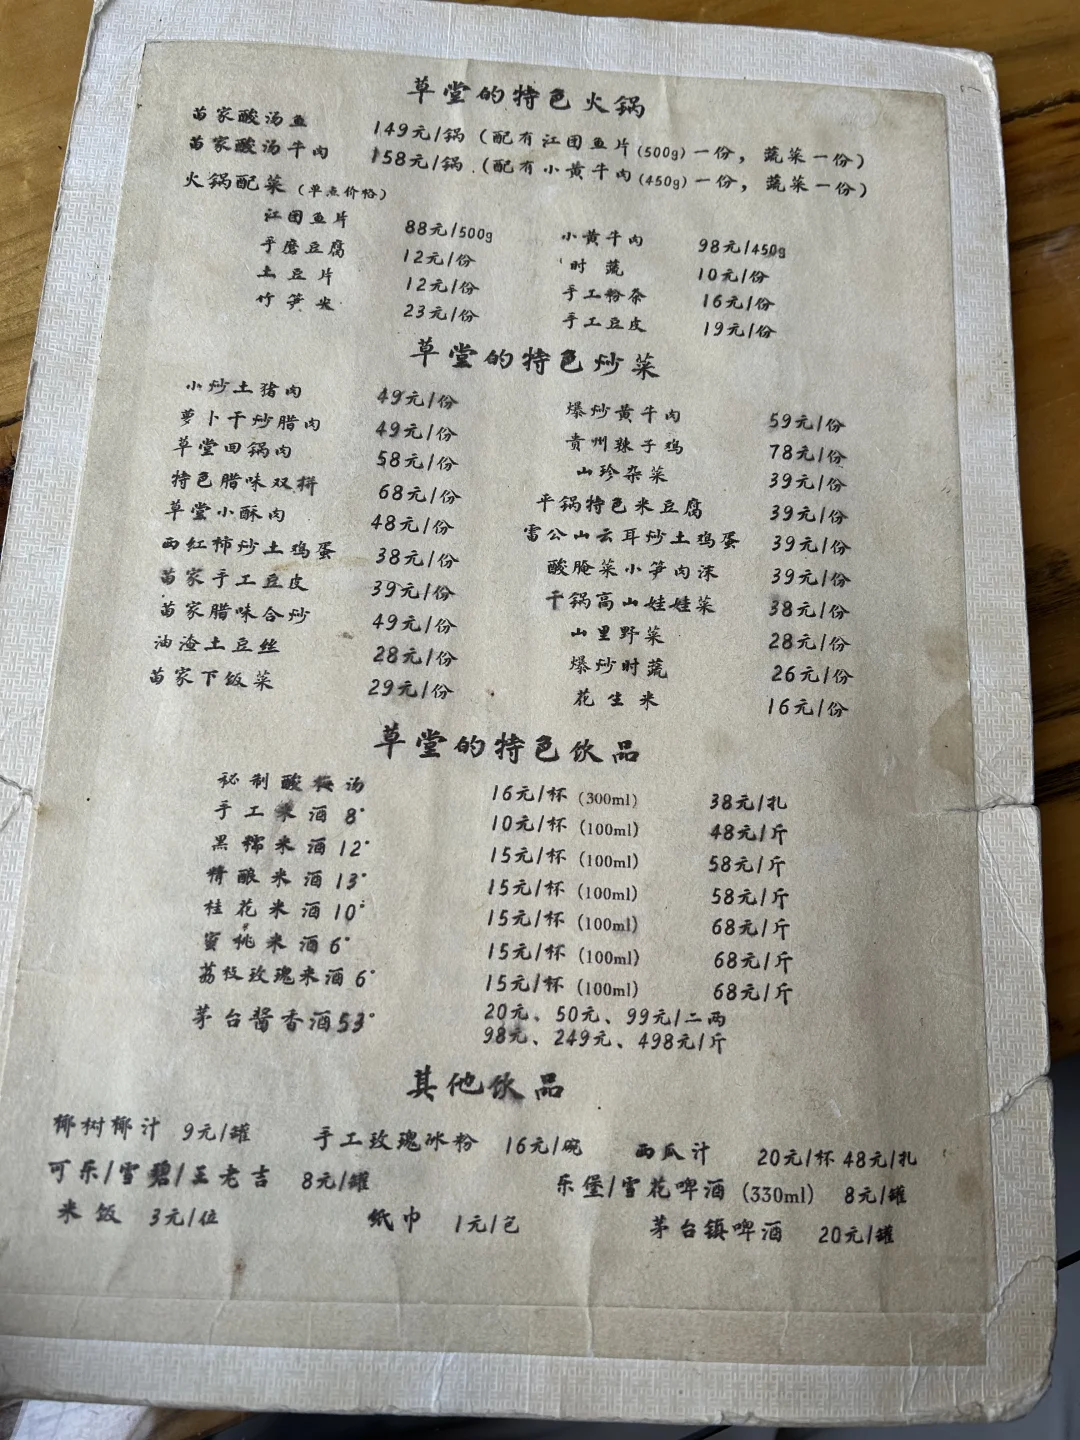 草堂的特色火锅
苗家酸汤鱼 149元/锅（配有江团鱼片(500g)一份，蔬菜一份）
苗家酸汤牛肉 158元/锅（配有小黄牛肉(450g)一份，蔬菜一份）
火锅配菜（单点价格）
江团鱼片 88元/500g 小黄牛肉 98元/450g
手磨豆腐 12元/份 时蔬 10元/份
土豆片 12元/份 手工粉条 16元/份
竹笋尖 23元/份 手工豆皮 19元/份
草堂的特色炒菜
小炒土猪肉 49元/份 爆炒黄牛肉 59元/份
萝卜干炒腊肉 49元/份 贵州辣子鸡 78元/份
草堂回锅肉 58元/份 山珍杂菜 39元/份
特色腊味双拼 68元/份 平锅特色米豆腐 39元/份
草堂小酥肉 48元/份 雷公山云耳炒土鸡蛋 39元/份
西红柿炒土鸡蛋 38元/份 酸腌菜小笋肉沫 39元/份
苗家手工豆皮 39元/份 干锅高山娃娃菜 38元/份
苗家腊味合炒 49元/份 山里野菜 28元/份
油渣土豆丝 28元/份 爆炒时蔬 26元/份
苗家下饭菜 29元/份 花生米 16元/份
草堂的特色饮品
秘制酸梅汤 16元/杯（300ml） 38元/扎
手工米酒 8° 10元/杯（100ml） 48元/斤
黑糯米酒 12° 15元/杯（100ml） 58元/斤
精酿米酒 13° 15元/杯（100ml） 58元/斤
桂花米酒 10° 15元/杯（100ml） 68元/斤
蜜桃米酒 6° 15元/杯（100ml） 68元/斤
荔枝玫瑰米酒 6° 15元/杯（100ml） 68元/斤
茅台酱香酒53° 20元、50元、99元/二两
98元、249元、498元/斤
其他饮品
椰树椰汁 9元/罐 手工玫瑰冰粉 16元/碗 西瓜汁 20元/杯 48元/扎
可乐/雪碧/王老吉 8元/罐 乐堡/雪花啤酒（330ml） 8元/罐
米饭 3元/位 纸巾 1元/包 茅台镇啤酒 20元/罐